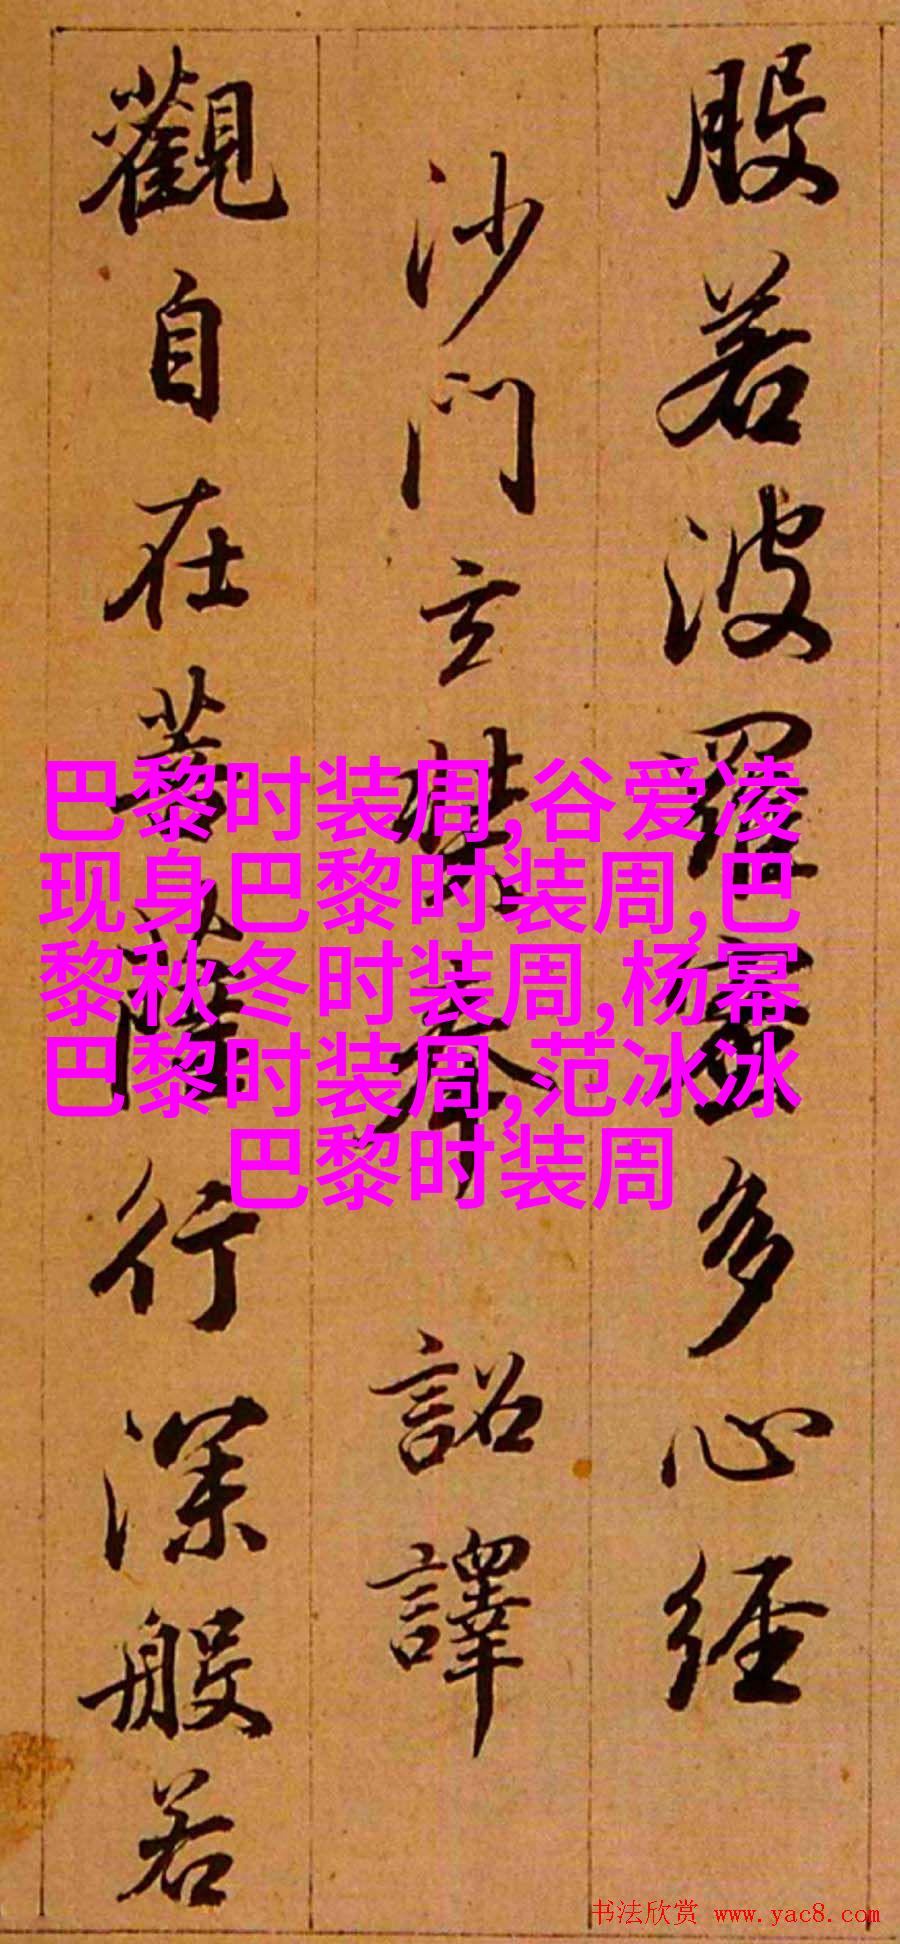 般若波羅蜜多心經
沙門玄奘奉 詔譯
觀自在菩薩行深般若
巴黎时装周,谷爱凌
现身巴黎时装周,巴
黎秋冬时装周,杨幂
巴黎时装周,范冰冰
巴黎时装周
书法欣赏 www.yac8.com